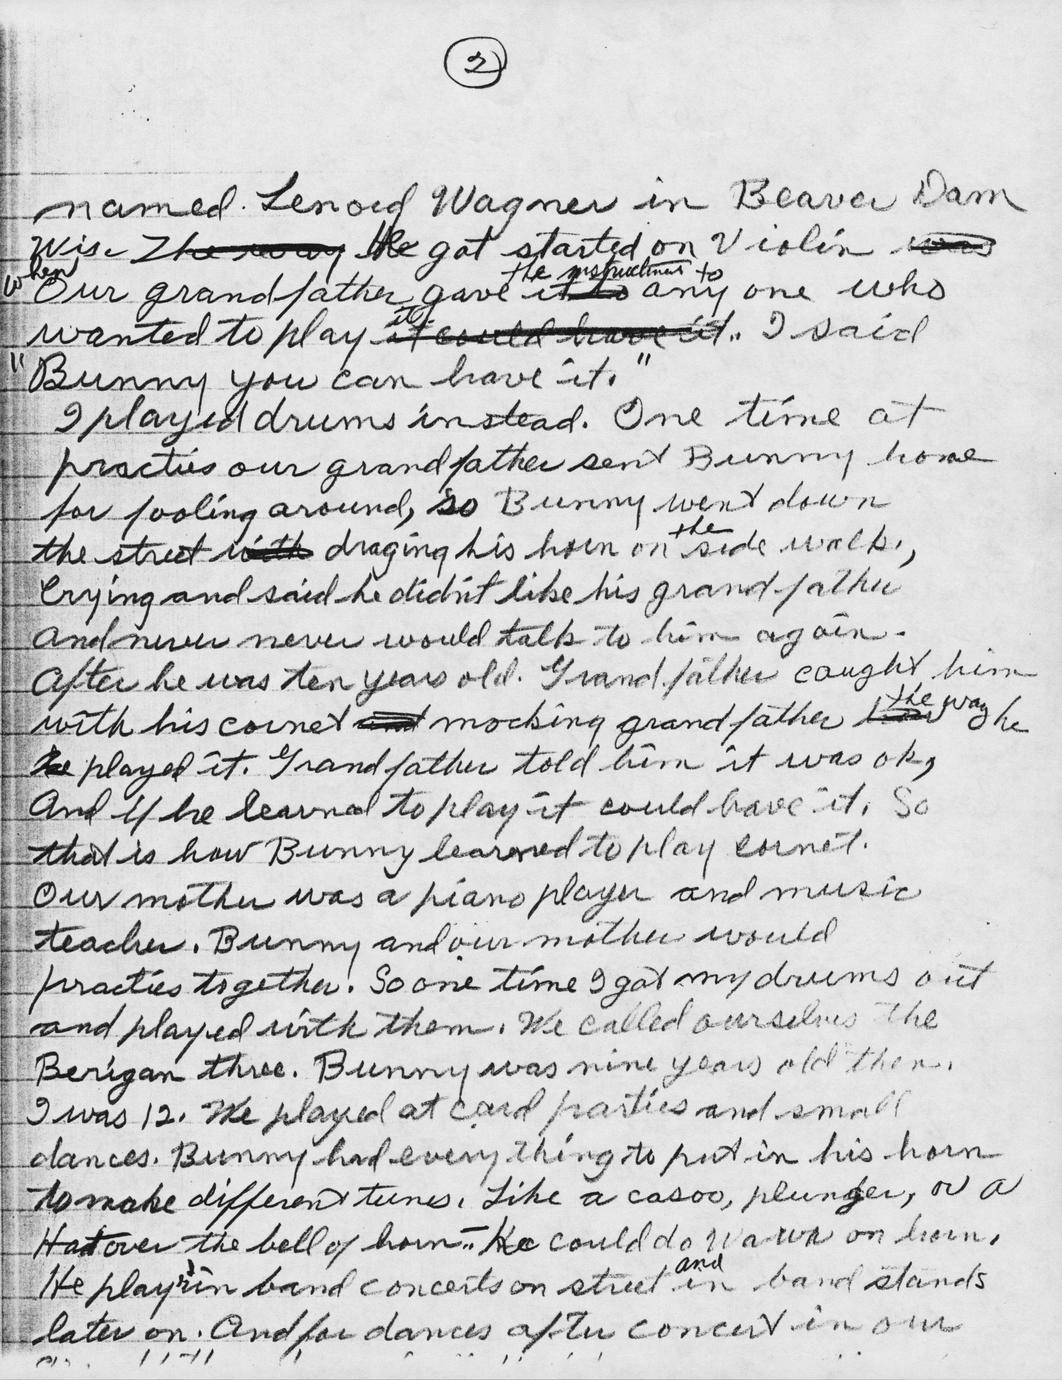 2
named Lenord Wagner in Beaver Dam
Wis. The way He got started on Violin was
when Our grandfather gave it to the instrument to any one who
wanted to play it it could have it.. I said
"Bunny you can have it."
I played drums instead. One time at
practies our grandfather sent Bunny home
for fooling around, so Bunny went down
the street with draging his horn on the side walk,
Crying and said he didn't like his grandfather
and never never would talk to him again.
After he was ten years old. Grandfather caught him
with his cornet and mocking grandfather the way he
he played it. Grandfather told him it was ok,
And if he learned to play it could have it. So
that is how Bunny learned to play cornet.
Our mother was a piano player and music
teacher. Bunny and our mother would
practies together. So one time I got my drums out
and played with them. We called ourselves the
Berigan three. Bunny was nine years old then.
I was 12. We played at card parties and small
dances. Bunny had everything to put in his horn
to make different tunes. Like a casoo, plunger, or a
Hat over the bell of horn.. He could do wa wa on horn.
He play'd in band concerts on street and in band stands
later on. And for dances after concert in our